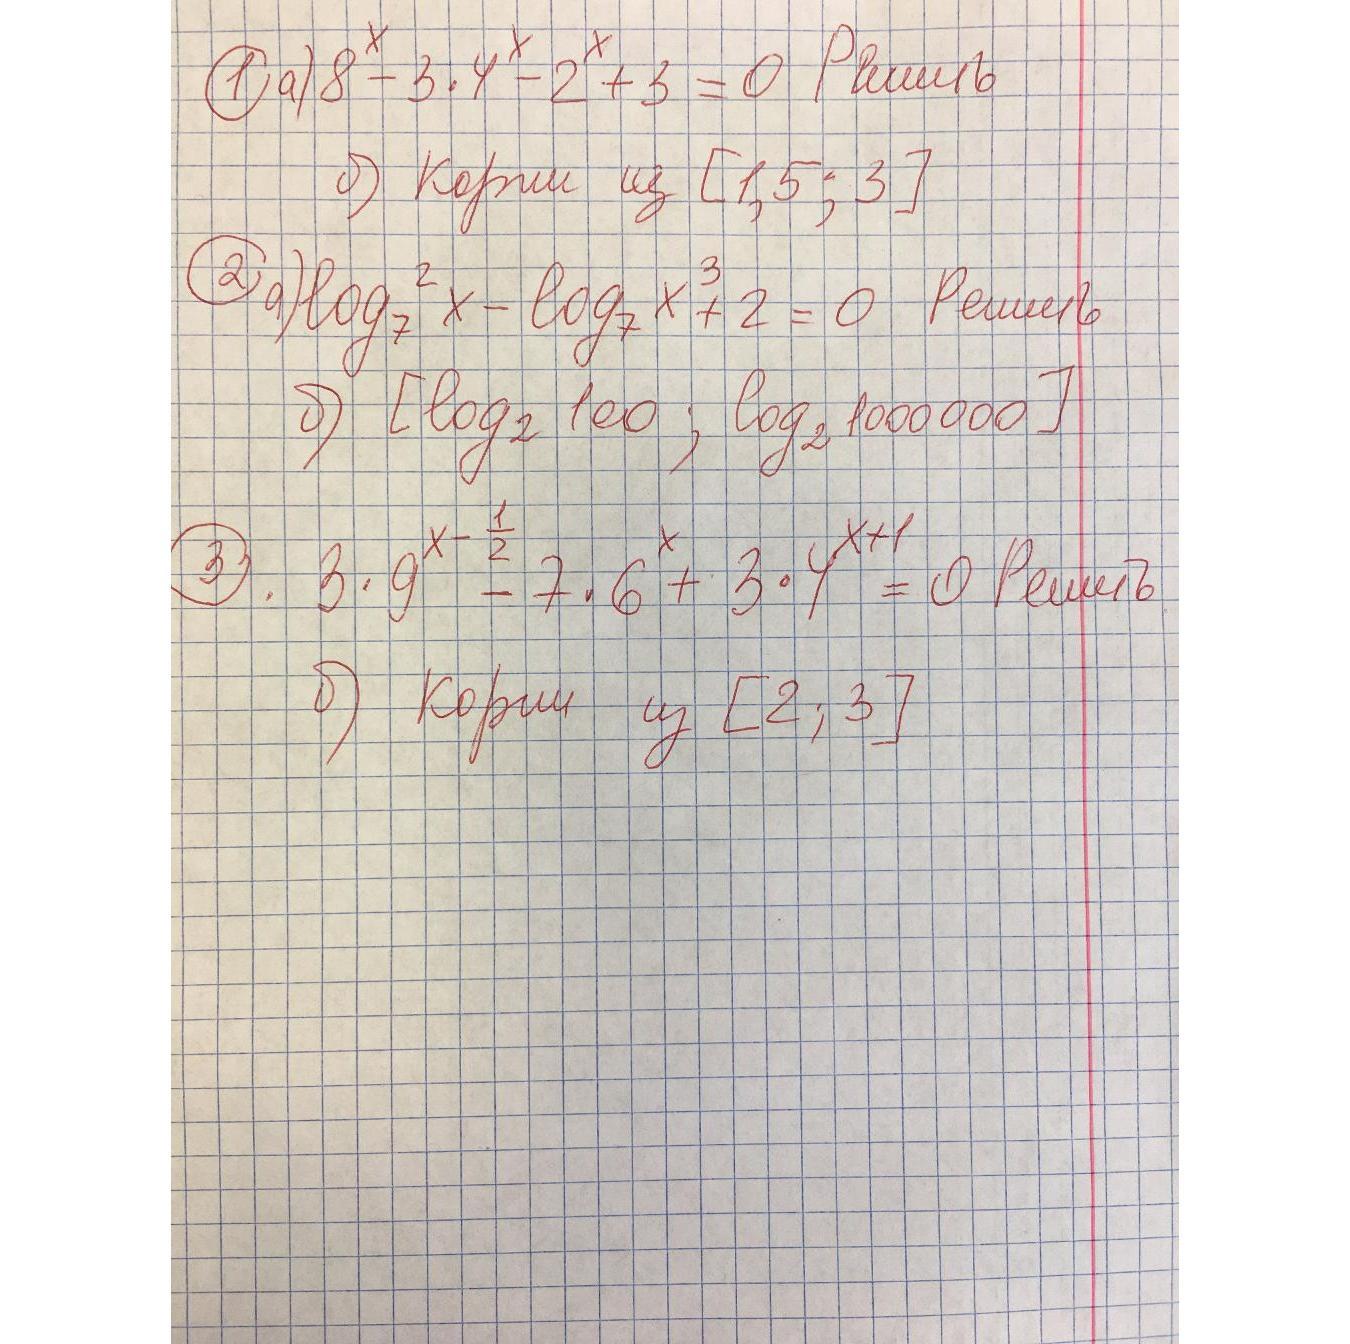 ① а) 8ˣ - 3·4ˣ - 2ˣ + 3 = 0 Решить
б) Корни из [1,5; 3]
② а) log₇² x - log₇ x³ + 2 = 0 Решить
б) [log₂ 100; log₂ 1000000]
③. 3·9^(x-1/2) - 7·6ˣ + 3·4^(x+1) = 0 Решить
б) Корни из [2; 3]